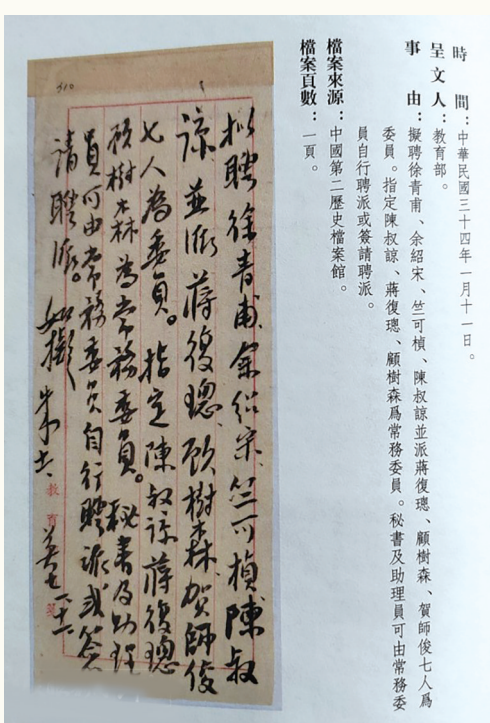 時間：中華民國三十四年一月十一日。
呈文人：教育部。
事由：擬聘徐青甫、余紹宋、竺可楨、陳叔諒並派蔣復璁、顧樹森、賀師俊七人爲
委員。指定陳叔諒、蔣復璁、顧樹森爲常務委員。秘書及助理員可由常務委
員自行聘派或簽請聘派。
檔案來源：中國第二歷史檔案館。
檔案頁數：一頁。
擬聘徐青甫、余紹宋、竺可楨、陳叔
諒、並派蔣復璁、顧樹森、賀師俊
七人為委員。指定陳叔諒蔣復璁
顧樹森為常務委員。秘書及助理
員可由常務委員自行聘派或簽
請聘派。
如擬
教育